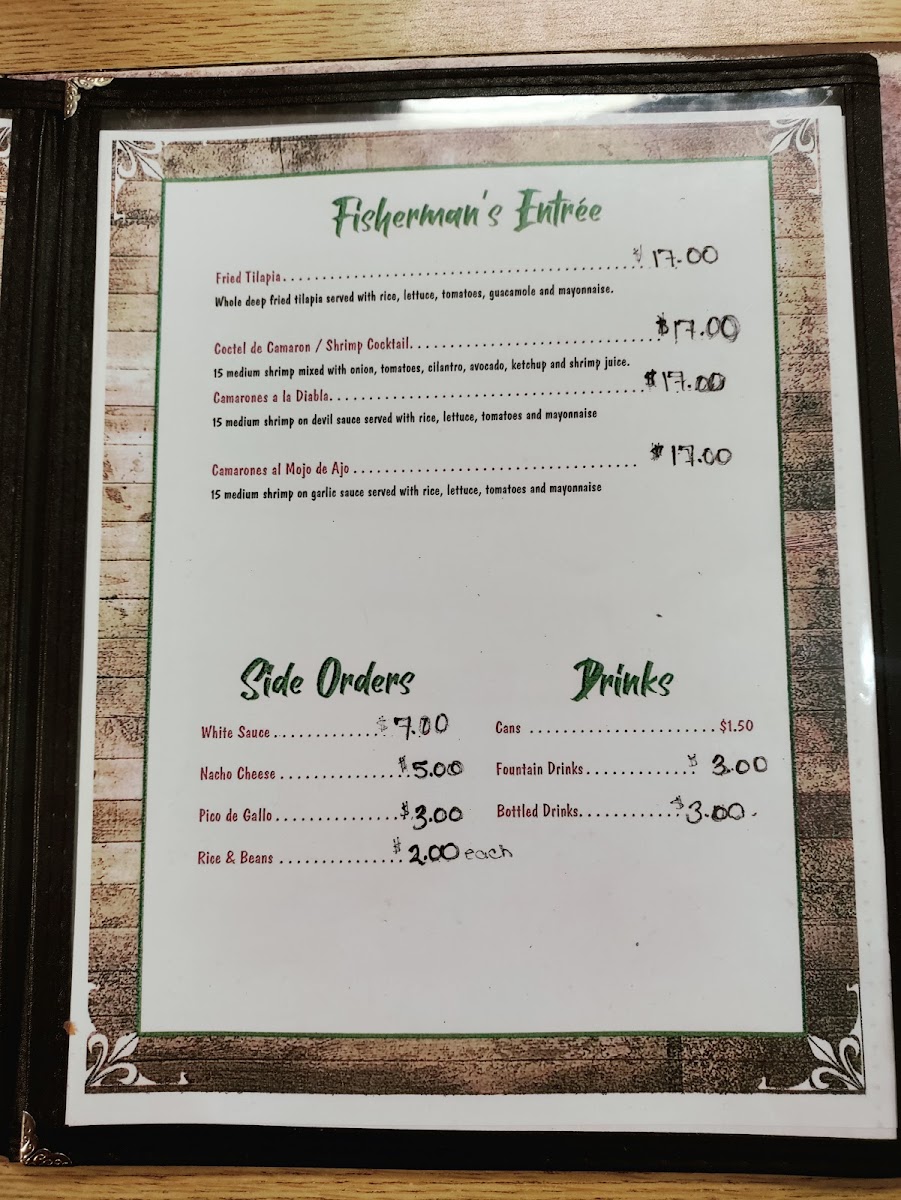 Fisherman's Entrée
Fried Tilapia........................................$ 17.00
Whole deep fried tilapia served with rice, lettuce, tomatoes, guacamole and mayonnaise.
Coctel de Camaron / Shrimp Cocktail...........................$17.00
15 medium shrimp mixed with onion, tomatoes, cilantro, avocado, ketchup and shrimp juice.
Camarones a la Diabla.....................................$17.00
15 medium shrimp on devil sauce served with rice, lettuce, tomatoes and mayonnaise
Camarones al Mojo de Ajo ................................... $17.00
15 medium shrimp on garlic sauce served with rice, lettuce, tomatoes and mayonnaise
Side Orders
White Sauce.............$7.00
Nacho Cheese ..............$5.00
Pico de Gallo...............$3.00
Rice & Beans ..............$2.00 each
Drinks
Cans ......................$1.50
Fountain Drinks.............$ 3.00
Bottled Drinks............$3.00.